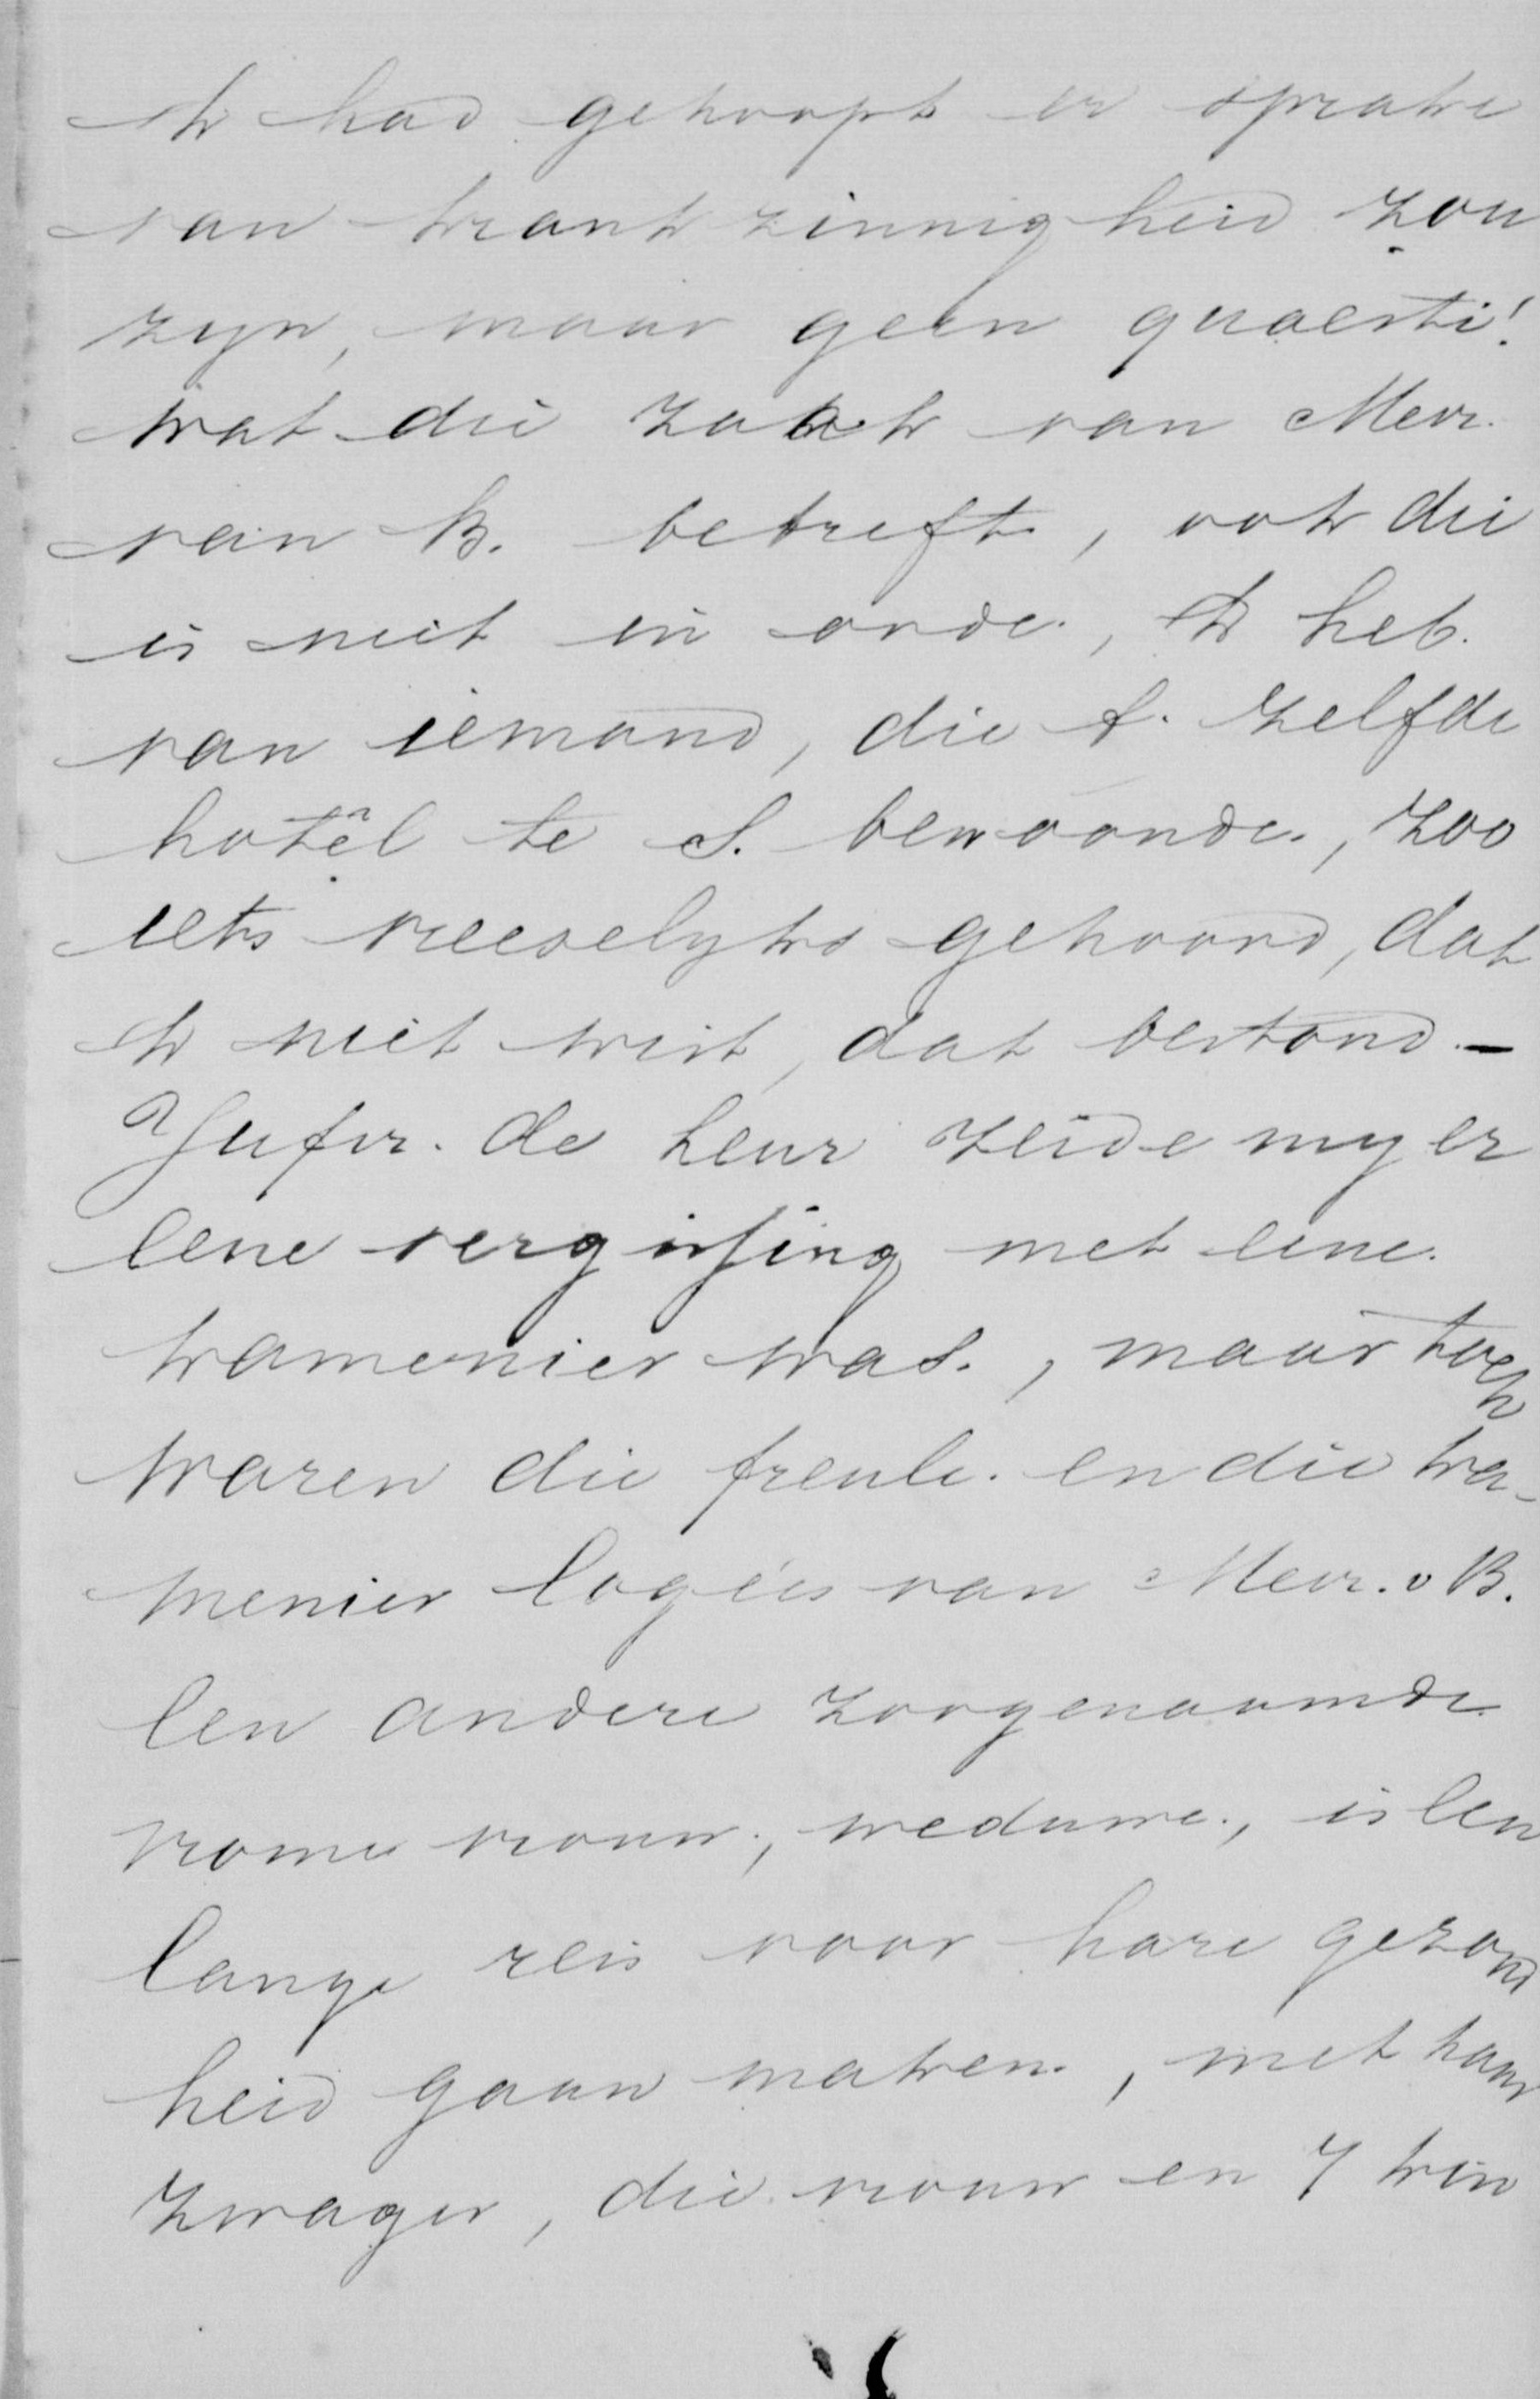 ik had gehoopt er sprake
van krankzinnigheid zou
zyn, maar geen quaestie!
wat die zaak van Mevr.
van B. betreft, ook die
is niet in orde, ik heb
van iemand, die t. zelfde
hotêl te S. bewoonde, zoo
iets vreeselyks gehoord, dat
ik niet wist, dat bestond. —
Jufvr. de Leur zeide my er
eene vergissing met eene
kamenier was, maar toch
waren die freule en die ka-
menier logées van Mevr. v B.
Een andere zoogenaamde
vrome vrouw, weduwe, is een
lange reis voor hare gezond
heid gaan maken, met haar
zwager, die vrouw en 7 kin